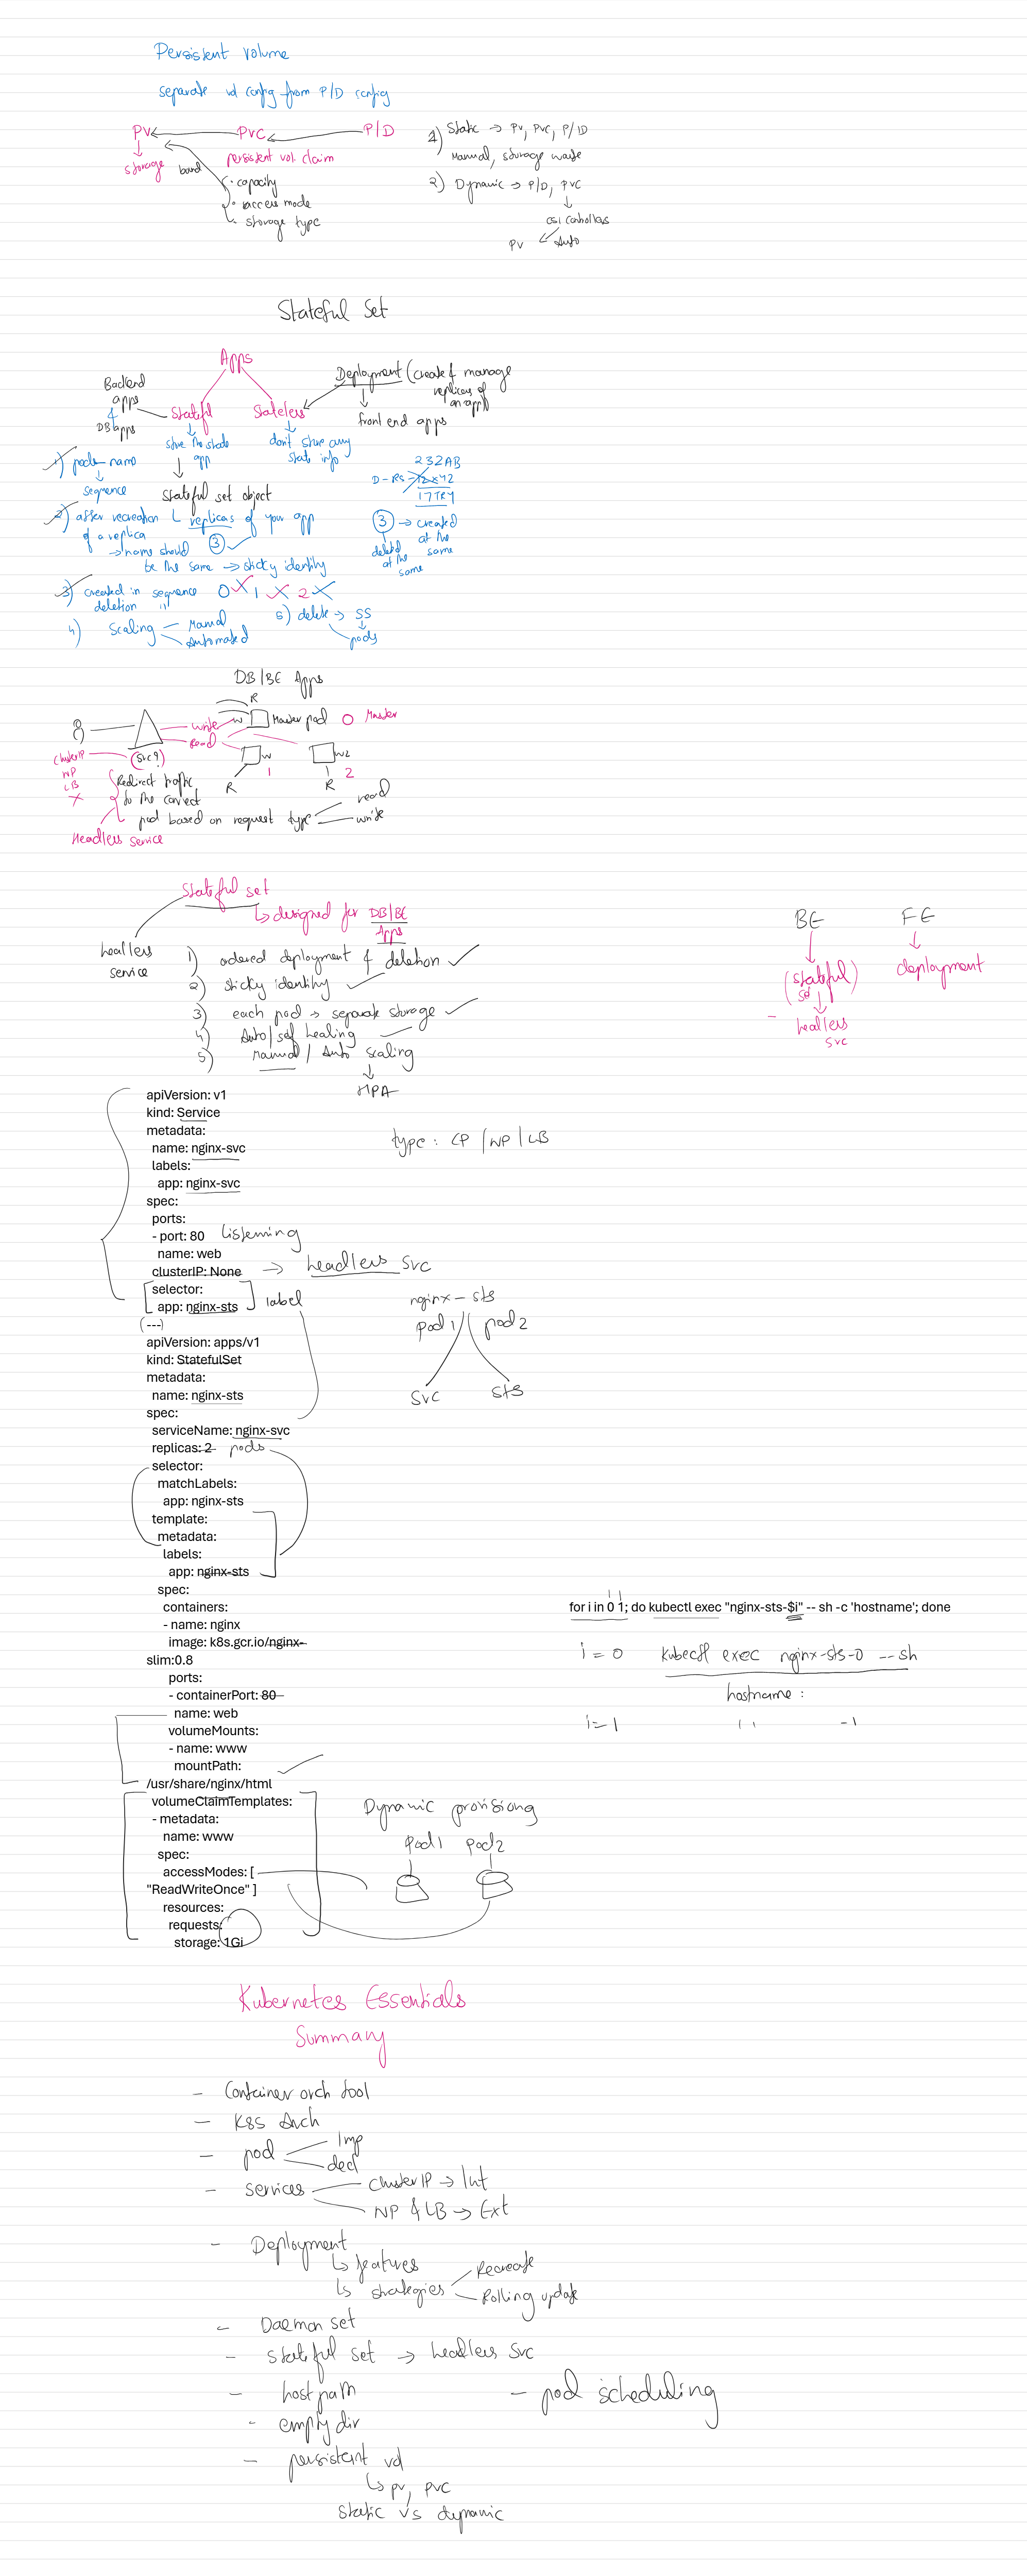 Persistent volume
separate vol config from P/D config
PV PVC P/D
storage
bound
persistent vol. claim
• capacity
• access mode
• storage type
1) Static → PV, PVC, P/D
Manual, storage waste
2) Dynamic → P/D, PVC
csi controllers
PV Auto
Stateful Set
Apps
Backend apps
&
DB apps
Stateful
Stateless
Deployment (create & manage
replicas of
an app)
front end apps
store the state
app
don't store any
state info
1) pod name
sequence
stateful set object
D - RS -
232AB
17TRY
2) after recreation
of a replica
→ name should
be the same → sticky identity
replicas of your app
3
3 → created
at the
same
deleted
at the
same
3) created in sequence 0 1 2
deletion "
4) Scaling
Manual
Automated
5) delete → SS
pods
DB/BE Apps
R
W
Master pod 0 Master
write
Read
W
1
R
W2
2
R
ClusterIP
NP
LB
X
(svc?)
Redirect traffic
to the correct
pod based on request type
read
write
Headless service
Stateful set
designed for DB/BE
Apps
headless
service
1) ordered deployment & deletion
2) sticky identity
3) each pod → separate storage
4) Auto/self healing
5) manual / Auto scaling
HPA
BE
(stateful
set)
headless
svc
FE
deployment
apiVersion: v1
kind: Service
metadata:
name: nginx-svc
labels:
app: nginx-svc
spec:
ports:
- port: 80 listening
name: web
clusterIP: None → headless svc
selector:
app: nginx-sts label
(---)
apiVersion: apps/v1
kind: StatefulSet
metadata:
name: nginx-sts
spec:
serviceName: nginx-svc
replicas: 2 pods
selector:
matchLabels:
app: nginx-sts
template:
metadata:
labels:
app: nginx-sts
spec:
containers:
- name: nginx
image: k8s.gcr.io/nginx-
slim:0.8
ports:
- containerPort: 80
name: web
volumeMounts:
- name: www
mountPath:
/usr/share/nginx/html
volumeClaimTemplates:
- metadata:
name: www
spec:
accessModes: [
"ReadWriteOnce" ]
resources:
requests:
storage: 1Gi
type: CP / NP / LB
nginx-sts
pod 1 pod 2
svc sts
for i in 0 1; do kubectl exec "nginx-sts-$i" -- sh -c 'hostname'; done
i = 0 kubectl exec nginx-sts-0 --sh
hostname :
i = 1 " -1
Dynamic provisiong
Pod1 Pod2
Kubernetes Essentials
Summary
- Container orch tool
- K8S Arch
- pod
Imp
decl
- services
ClusterIP → Int
NP & LB → Ext
- Deployment
features
strategies
Recreate
Rolling update
- Daemon set
- stateful set → headless svc
- host path
- empty dir
- persistent vol
pv, pvc
static vs dynamic
- pod scheduling